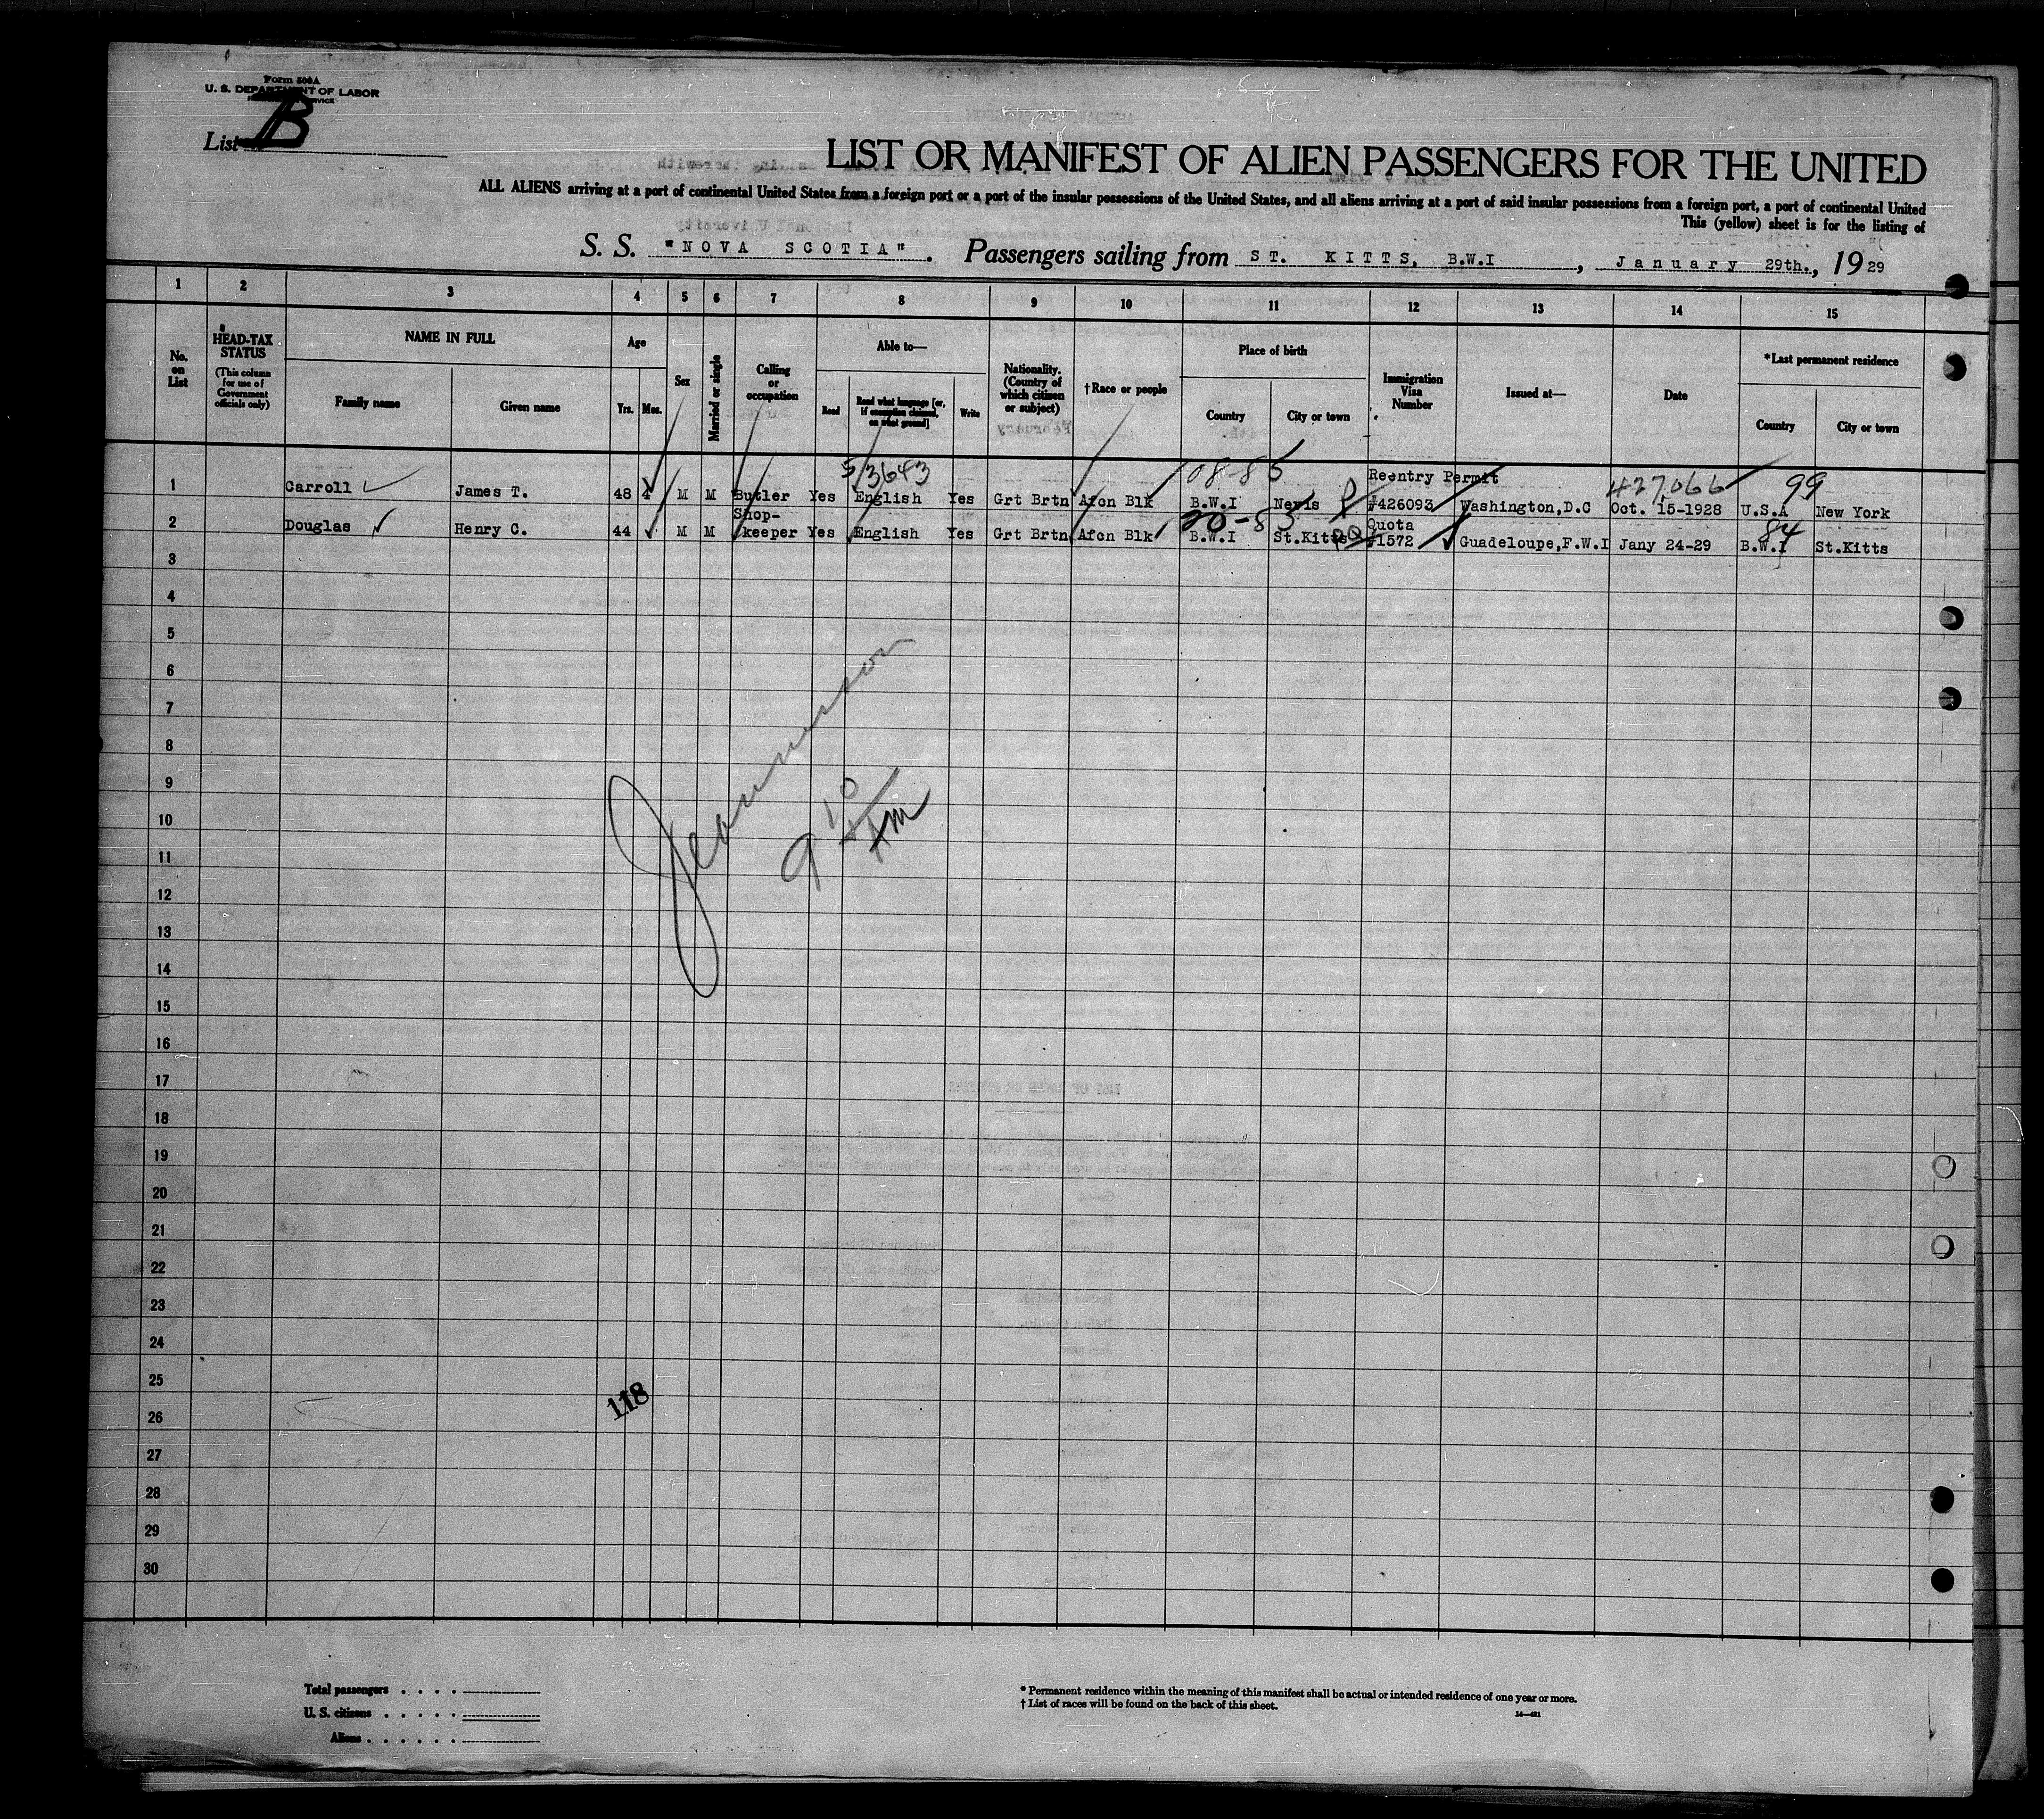 Form 500A
U. S. DEPARTMENT OF LABOR
List B
LIST OR MANIFEST OF ALIEN PASSENGERS FOR THE UNITED
ALL ALIENS arriving at a port of continental United States from a foreign port or a port of the insular possessions of the United States, and all aliens arriving at a port of said insular possessions from a foreign port, a port of continental United
This (yellow) sheet is for the listing of
S. S. "NOVA SCOTIA". Passengers sailing from ST. KITTS, B.W.I , January 29th., 1929
1 2 3 4 5 6 7 8 9 10 11 12 13 14 15
No. on List
HEAD-TAX STATUS (This column for use of Government officials only)
NAME IN FULL
Family name
Given name
Age
Yrs. Mos.
Sex
Married or single
Calling or occupation
Able to—
Read
Read what language [or, if exemption claimed, on what ground]
Write
Nationality. (Country of which citizen or subject)
† Race or people
Place of birth
Country
City or town
Immigration Visa Number
Issued at—
Date
*Last permanent residence
Country
City or town
5/3643 08-85 Reentry Permit 427,066 99
1 Carroll James T. 48 4 M M Butler Yes English Yes Grt Brtn Afcn Blk B.W.I Nevis #426093 Washington,D.C Oct. 15-1928 U.S.A New York
Shop- 20-83 Quota 84
2 Douglas Henry C. 44 M M keeper Yes English Yes Grt Brtn Afcn Blk B.W.I St.Kitts #1572 Guadeloupe,F.W.I Jany 24-29 B.W.I St.Kitts
3
4
5
6
7
8
9
9 10 AM
10
11
12
13
14
15
16
17
18
19
20
21
22
23
24
25
118
26
27
28
29
30
Total passengers . . . .
U. S. citizens . . . . .
Aliens . . . . . .
* Permanent residence within the meaning of this manifest shall be actual or intended residence of one year or more.
† List of races will be found on the back of this sheet.
14—421